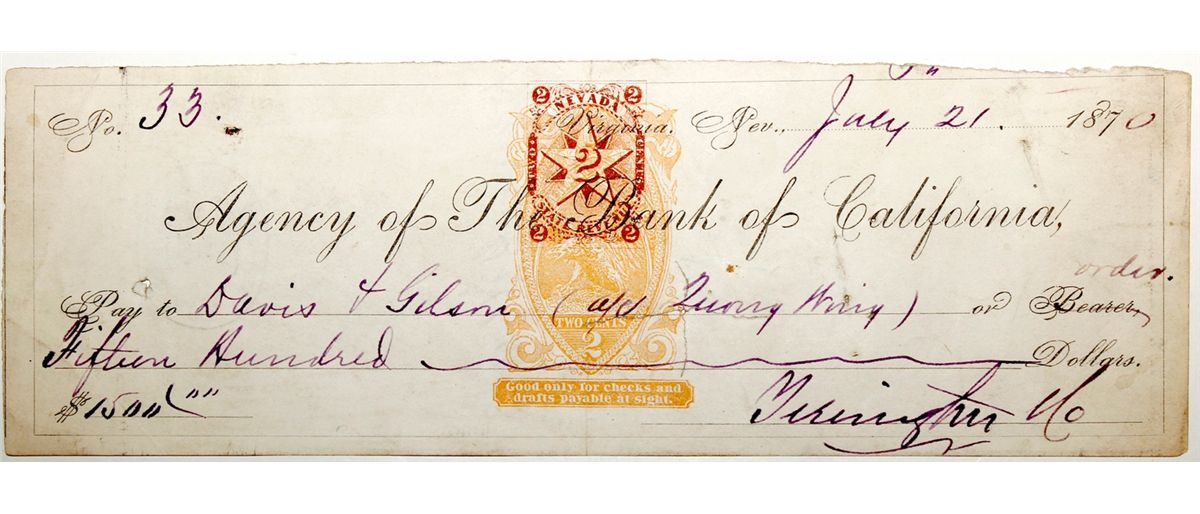 No. 33. Virginia. Nev., July 21. 1870
2 NEVADA 2
TWO 2 CENTS
STATE REVENUE
2 2
Agency of The Bank of California,
order.
Pay to Davis & Gilson (a/c Quong Wing) or Bearer,
TWO CENTS
2
Fifteen Hundred Dollars.
Good only for checks and
drafts payable at sight.
$1500